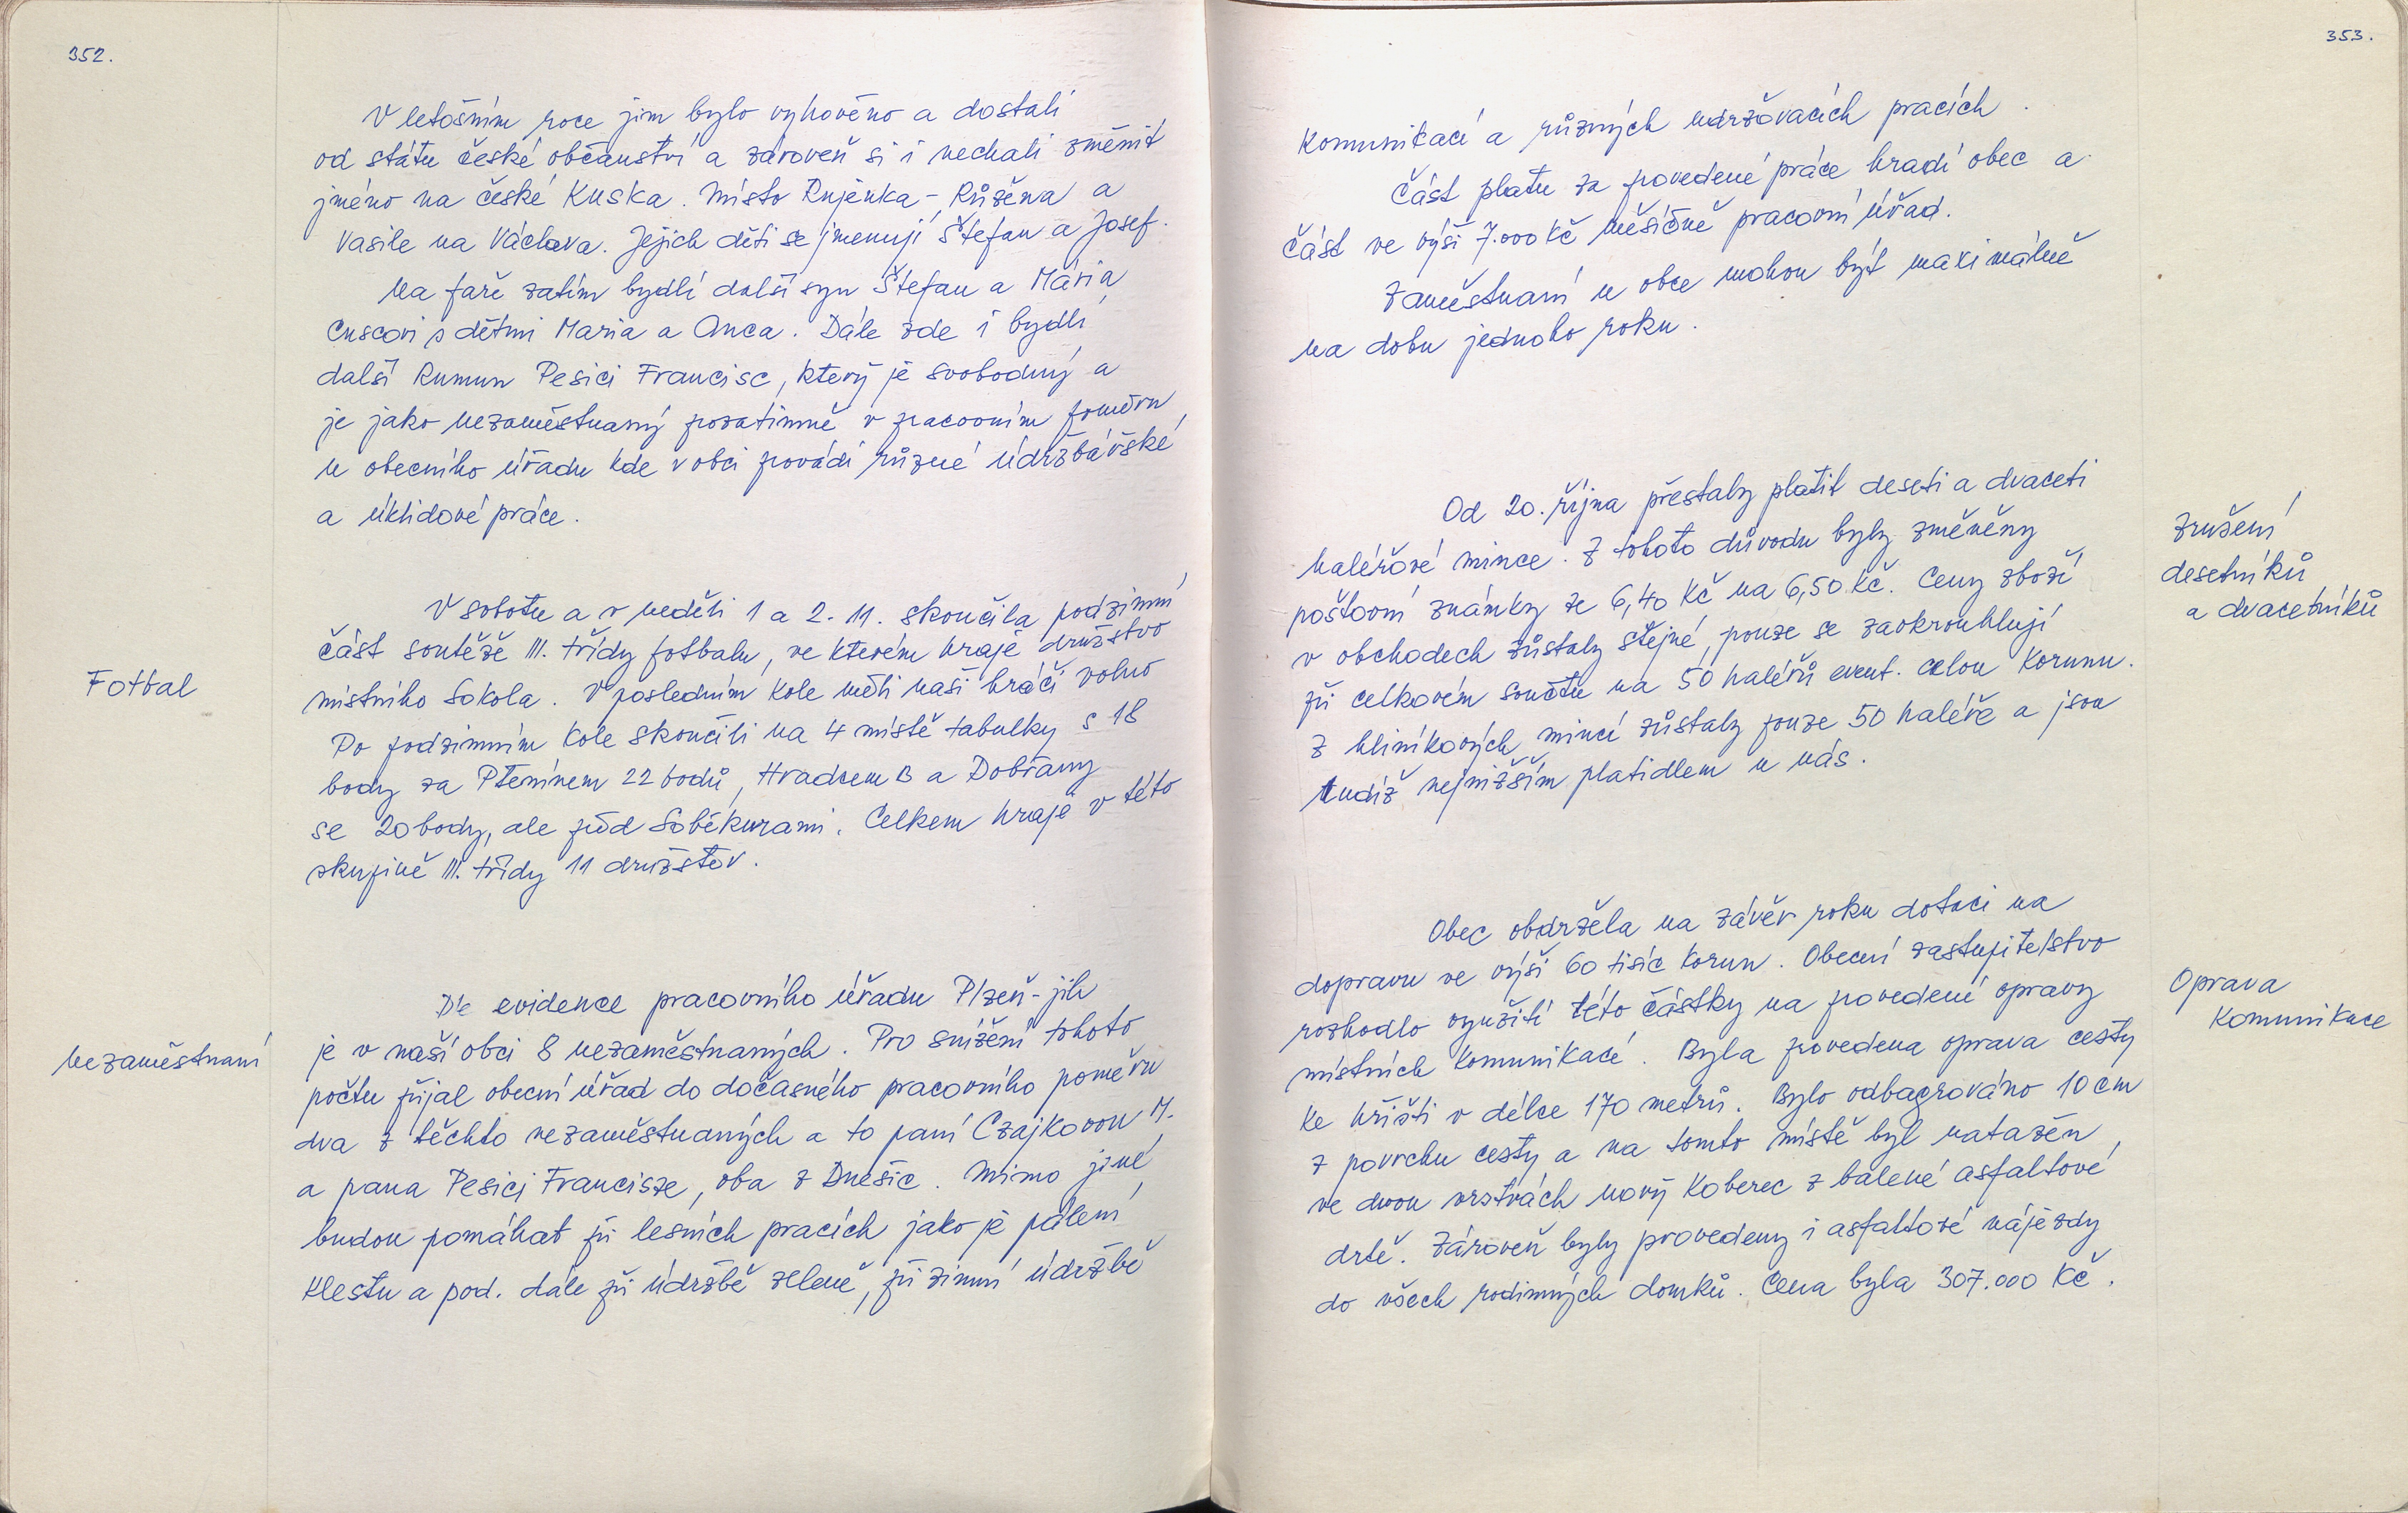 352.
V letošním roce jim bylo vyhověno a dostali
od státu české občanství a zároveň si i nechali změnit
jméno na české Kuska. Místo Rujenka - Růžena a
Vasile na Václava. Jejich děti se jmenují Štefan a Josef.
Na faře zatím bydlí další syn Štefan a Mária
Cuscovi s dětmi Maria a Anca. Dále zde i bydlí
další Rumun Pesici Francisc, který je svobodný a
je jako nezaměstnaný pozatimně v pracovním poměru
u obecního úřadu kde v obci provádí různé údržbářské
a úklidové práce.
Fotbal
V sobotu a v neděli 1 a 2. 11. skončila podzimní
část soutěže III. třídy fotbalu, ve kterém hraje družstvo
místního Sokola. V posledním kole měli naši hráči volno
Po podzimním kole skončili na 4 místě tabulky s 18
body za Ptenínem 22 bodů, Hradcem B a Dobřany
se 20 body, ale před Soběkurami. Celkem hraje v této
skupině III. třídy 11 družstev.
nezaměstnaní
Dle evidence pracovního úřadu Plzeň-jih
je v naší obci 8 nezaměstnaných. Pro snížení tohoto
počtu přijal obecní úřad do dočasného pracovního poměru
dva z těchto nezaměstnaných a to paní Czajkovou M.
a pana Pesici Francisze, oba z Dnešic. Mimo jiné
budou pomáhat při lesních pracích jako je pálení
klestu a pod. dále při údržbě zeleně, při zimní údržbě
353.
komunikací a různých udržovacích pracích.
Část platu za provedené práce hradí obec a
část ve výši 7.000 Kč měsíčně pracovní úřad.
Zaměstnaní u obce mohou být maximálně
na dobu jednoho roku.
Zrušení
desetníků
a dvacetníků
Od 20. října přestaly platit deseti a dvaceti
haléřové mince. Z tohoto důvodu byly změněny
poštovní známky ze 6,40 Kč na 6,50 Kč. Ceny zboží
v obchodech zůstaly stejné, pouze se zaokrouhlují
při celkovém součtu na 50 haléřů event. celou korunu.
Z hliníkových mincí zůstaly pouze 50 haléře a jsou
tudíž nejnižším platidlem u nás.
Oprava
komunikace
Obec obdržela na závěr roku dotaci na
dopravu ve výši 60 tisíc korun. Obecní zastupitelstvo
rozhodlo využití této částky na provedení opravy
místních komunikací. Byla provedena oprava cesty
ke hřišti v délce 170 metrů. Bylo odbagrováno 10 cm
z povrchu cesty a na tomto místě byl natažen
ve dvou vrstvách nový koberec z balené asfaltové
drtě. Zároveň byly provedeny i asfaltové nájezdy
do všech rodinných domků. Cena byla 307.000 Kč.